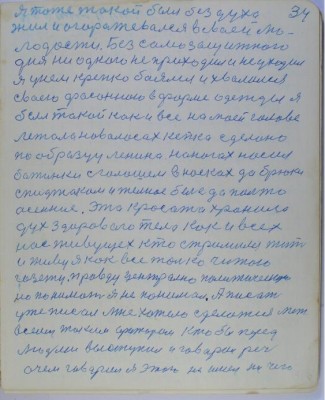 34
Я тоже такой был без духа
жил и огораживался в своей мо-
лодости. Без самозащитного
дня ни одного не приходил и не уходил
Я умом крепко боялся и хвалился
своею фасонною в форме одеждею Я
был такой как и все на моей голове
летом на волосах кепка сделано
по образцу ленина на ногах носил
ботинки с галошем в носках да брюки
с пиджаком и теплое было да пальто
осеннее. Эта красота хранила
дух здорового тела как и всех
нас живущих кто стремился жить
и живу я как все только читаю
газету правду центрально политическую
но понимать я не понимал. А писать
уже писал мне хотелось сделаться
всем таким оратором кто бы перед
людьми выступил и говорил реч
о чем говорил я этого не имел на чего